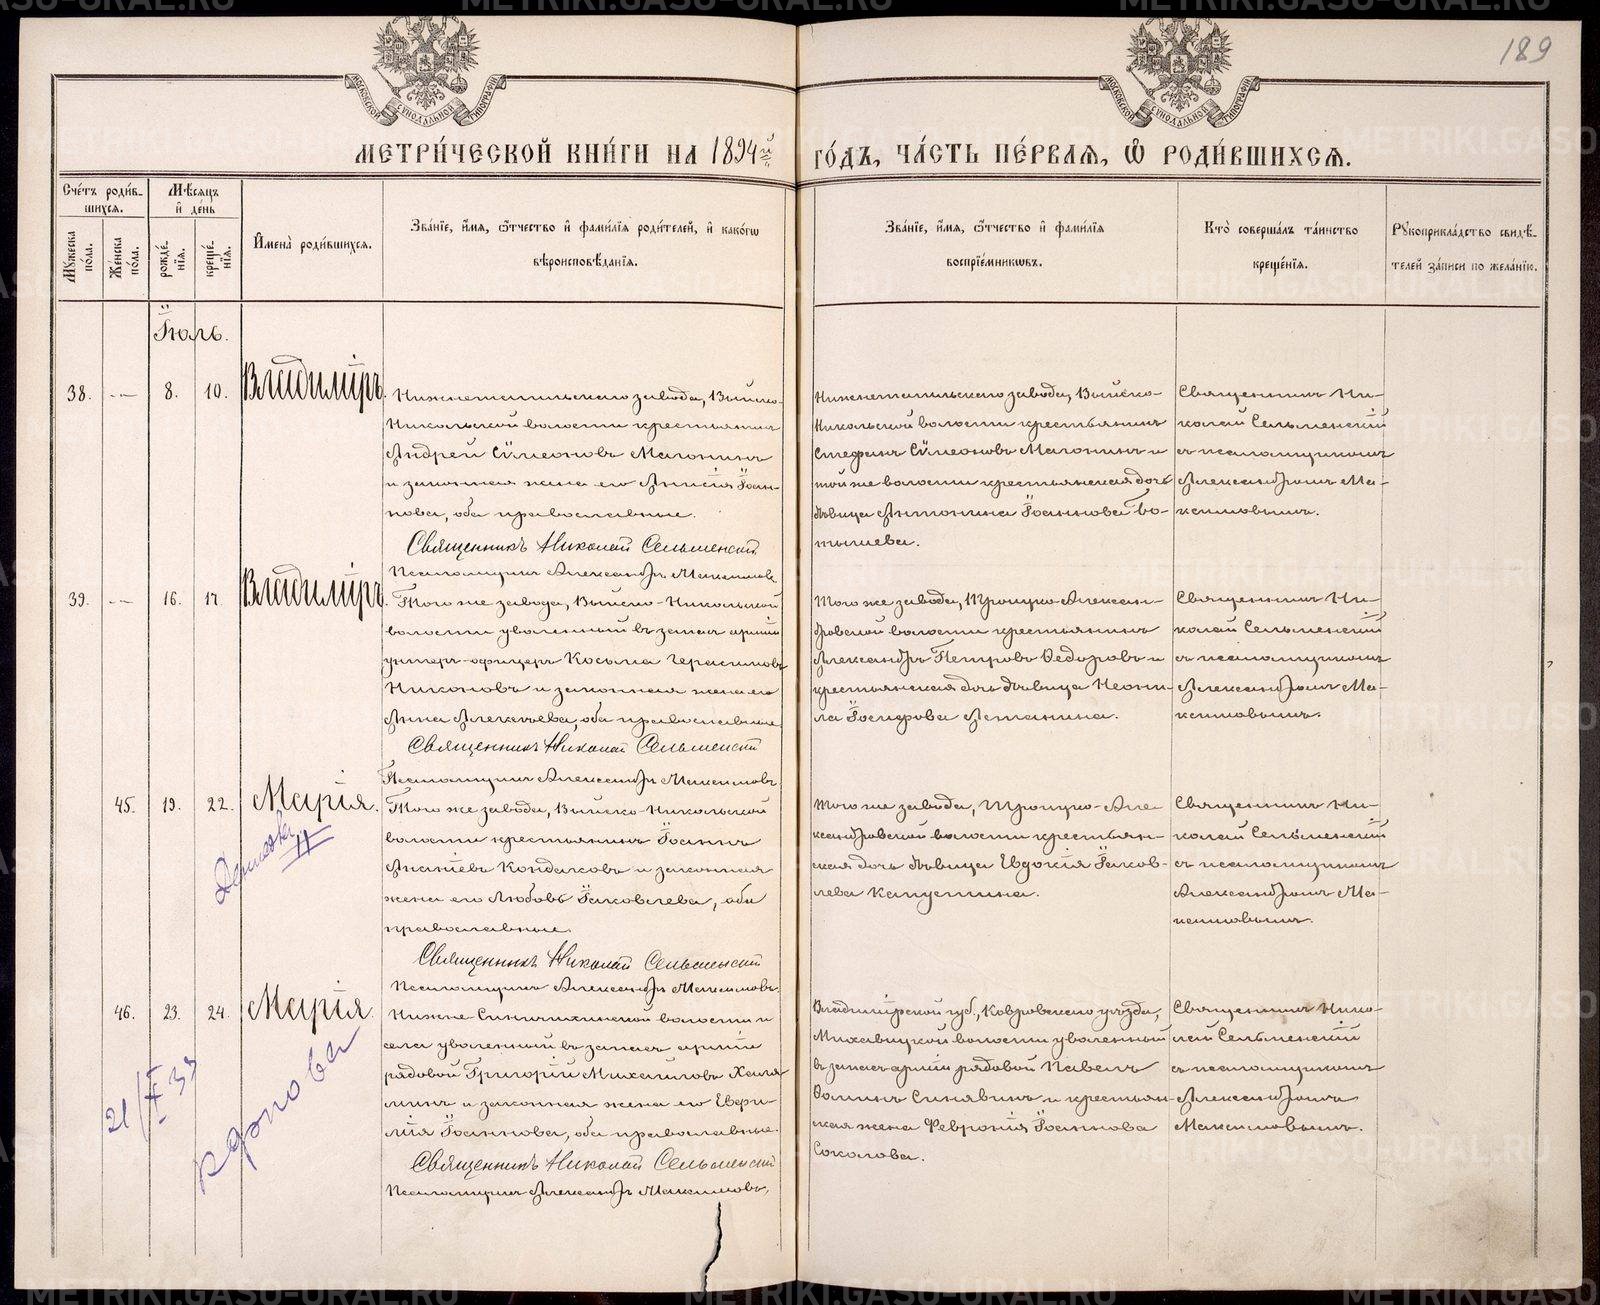 189
МОСКОВСКОЙ СѴНОДАЛЬНОЙ ТИПОГРАФІИ
МОСКОВСКОЙ СѴНОДАЛЬНОЙ ТИПОГРАФІИ
МЕТРИ́ЧЕСКОЙ КНИ́ГИ НА 1894й ГО́ДЪ, ЧА́СТЬ ПЕ́РВАЯ, Ѿ РОДИ́ВШИХСЯ.
Сче́тъ роди́в-
шихся.
Мꙋжеска
пола.
Же́нска
по́ла.
Мѣ́сяцъ
и҆ де́нь
рожде́-
нїя.
креще́-
нїя.
И҆мена̀ роди́вшихся.
Зва́нїе, и҆́мя, ѻ҆́тчество и҆ фами́лїя роди́телей, и҆ како́гѡ
вѣроисповѣ́данїя.
Зва́нїе, и҆́мя, ѻ҆́тчество и҆ фами́лїя
воспрїе́мникѡвъ.
Кто̀ соверша́лъ та́инство
креще́нїя.
Рꙋкоприкла́дство свидѣ́-
телей за́писи по жела́нїю.
Іюль.
38. -"- 8. 10. Владиміръ.
Нижнетагильскаго завода, Выйско-
Никольской волости крестьянинъ
Андрей Сѵмеоновъ Магонинъ
и законная жена его Анисія Іоан-
нова, оба православные.
Священникъ Николай Сельменскій
Псаломщикъ Александръ Максимовъ
Нижнетагильскаго завода, Выйско-
Никольской волости крестьянинъ
Стефанъ Сѵмеоновъ Магонинъ и
той же волости крестьянская дочь
дѣвица Антонина Іоаннова
Священникъ Ни-
колай Сельменскій
съ псаломщикомъ
Александромъ Ма-
ксимовымъ.
39. -"- 16. 17. Владиміръ.
Того же завода, Выйско-Никольской
волости уволенный въ запасъ арміи
унтеръ-офицеръ Косьма Герасимовъ
Никоновъ и законная жена его
Анна Алексѣева, оба православные
Священникъ Николай Сельменскій
Псаломщикъ Александръ Максимовъ.
Того же завода, Троицко-Алексан-
дровской волости крестьянинъ
Александръ Петровъ Ѳедоровъ и
крестьянская дочь дѣвица Неони-
ла Іосифова
Священникъ Ни-
колай Сельменскій
съ псаломщикомъ
Александромъ Ма-
ксимовымъ.
45. 19. 22. Марія.
Того же завода, Выйско-Никольской
волости крестьянинъ Іоаннъ
Ананіевъ Кондаковъ и законная
жена его Любовь Іаковлева, оба
православные.
Священникъ Николай Сельменскій
Псаломщикъ Александръ Максимовъ.
Того же завода, Троицко-Але-
ксандровской волости крестьян-
ская дочь дѣвица Евдокія Іаков-
лева Капустина.
Священникъ Ни-
колай Сельменскій
съ псаломщикомъ
Александромъ Ма-
ксимовымъ.
46. 23. 24. Марія.
Нижне-Синячихинской волости и
села уволенный въ запасъ арміи
рядовой Григорій Михаиловъ
и законная жена его Евфи-
мія Іоаннова, оба православные.
Священникъ Николай Сельменскій
Псаломщикъ Александръ Максимовъ.
Владимірской губ., Ковровскаго уѣзда,
волости уволенный
въ запасъ арміи рядовой Павелъ
Ѳоминъ Синявинъ и крестьян-
ская жена Февронія Іоаннова
Соколова.
Священникъ Нико-
лай Сельменскій
съ псаломщикомъ
Александромъ
Максимовымъ.
21/X 39
Карпова
METRIKI.GASO-URAL.RU